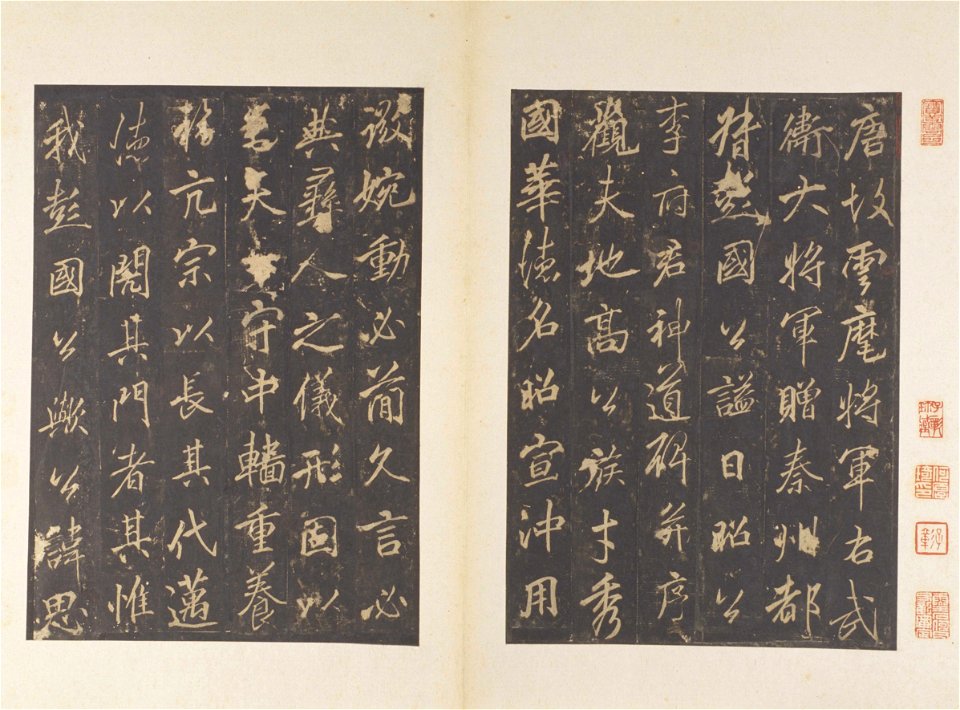 唐故雲麾將軍右武
衛大將軍贈秦州都
督彭國公謚曰昭公
李府君神道碑并序
觀夫地高公族才秀
國華德名昭宣沖用
微婉動必簡久言必
典彝人之儀形固以
天守中轖重養
福亢宗以長其代邁
德以闊其門者其惟
我彭國公歟公諱思